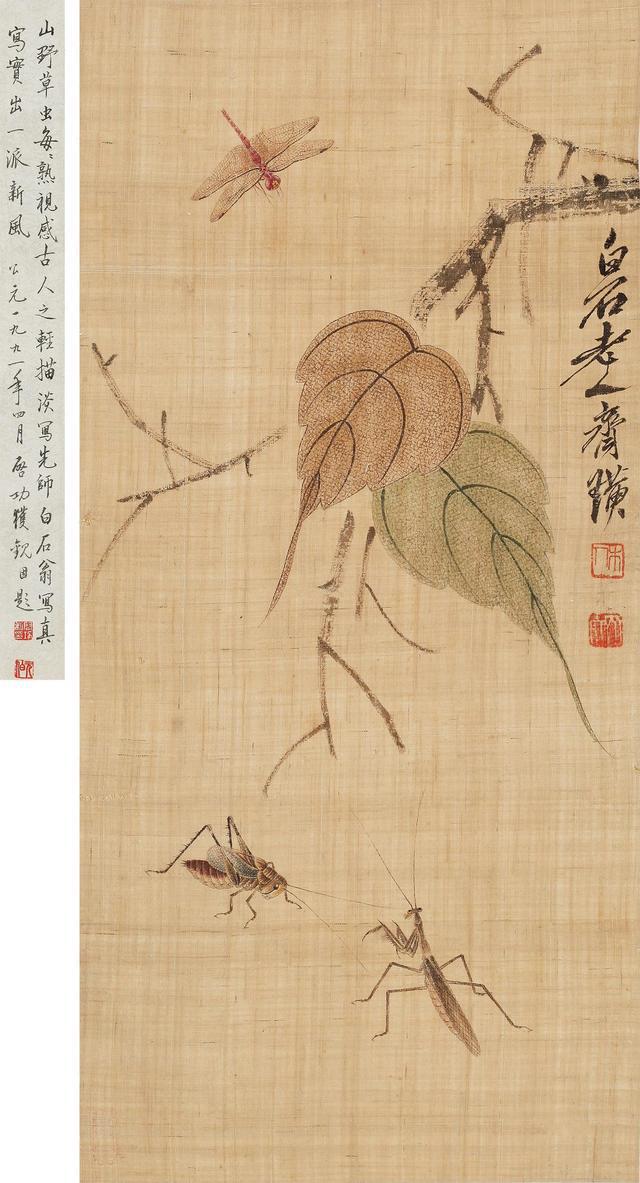 白石老人齊璜
木人
山野草虫每々熟視感古人之輕描淡寫先師白石翁寫真
寫實出一派新風 公元一九九一年四月啓功獲觀因題